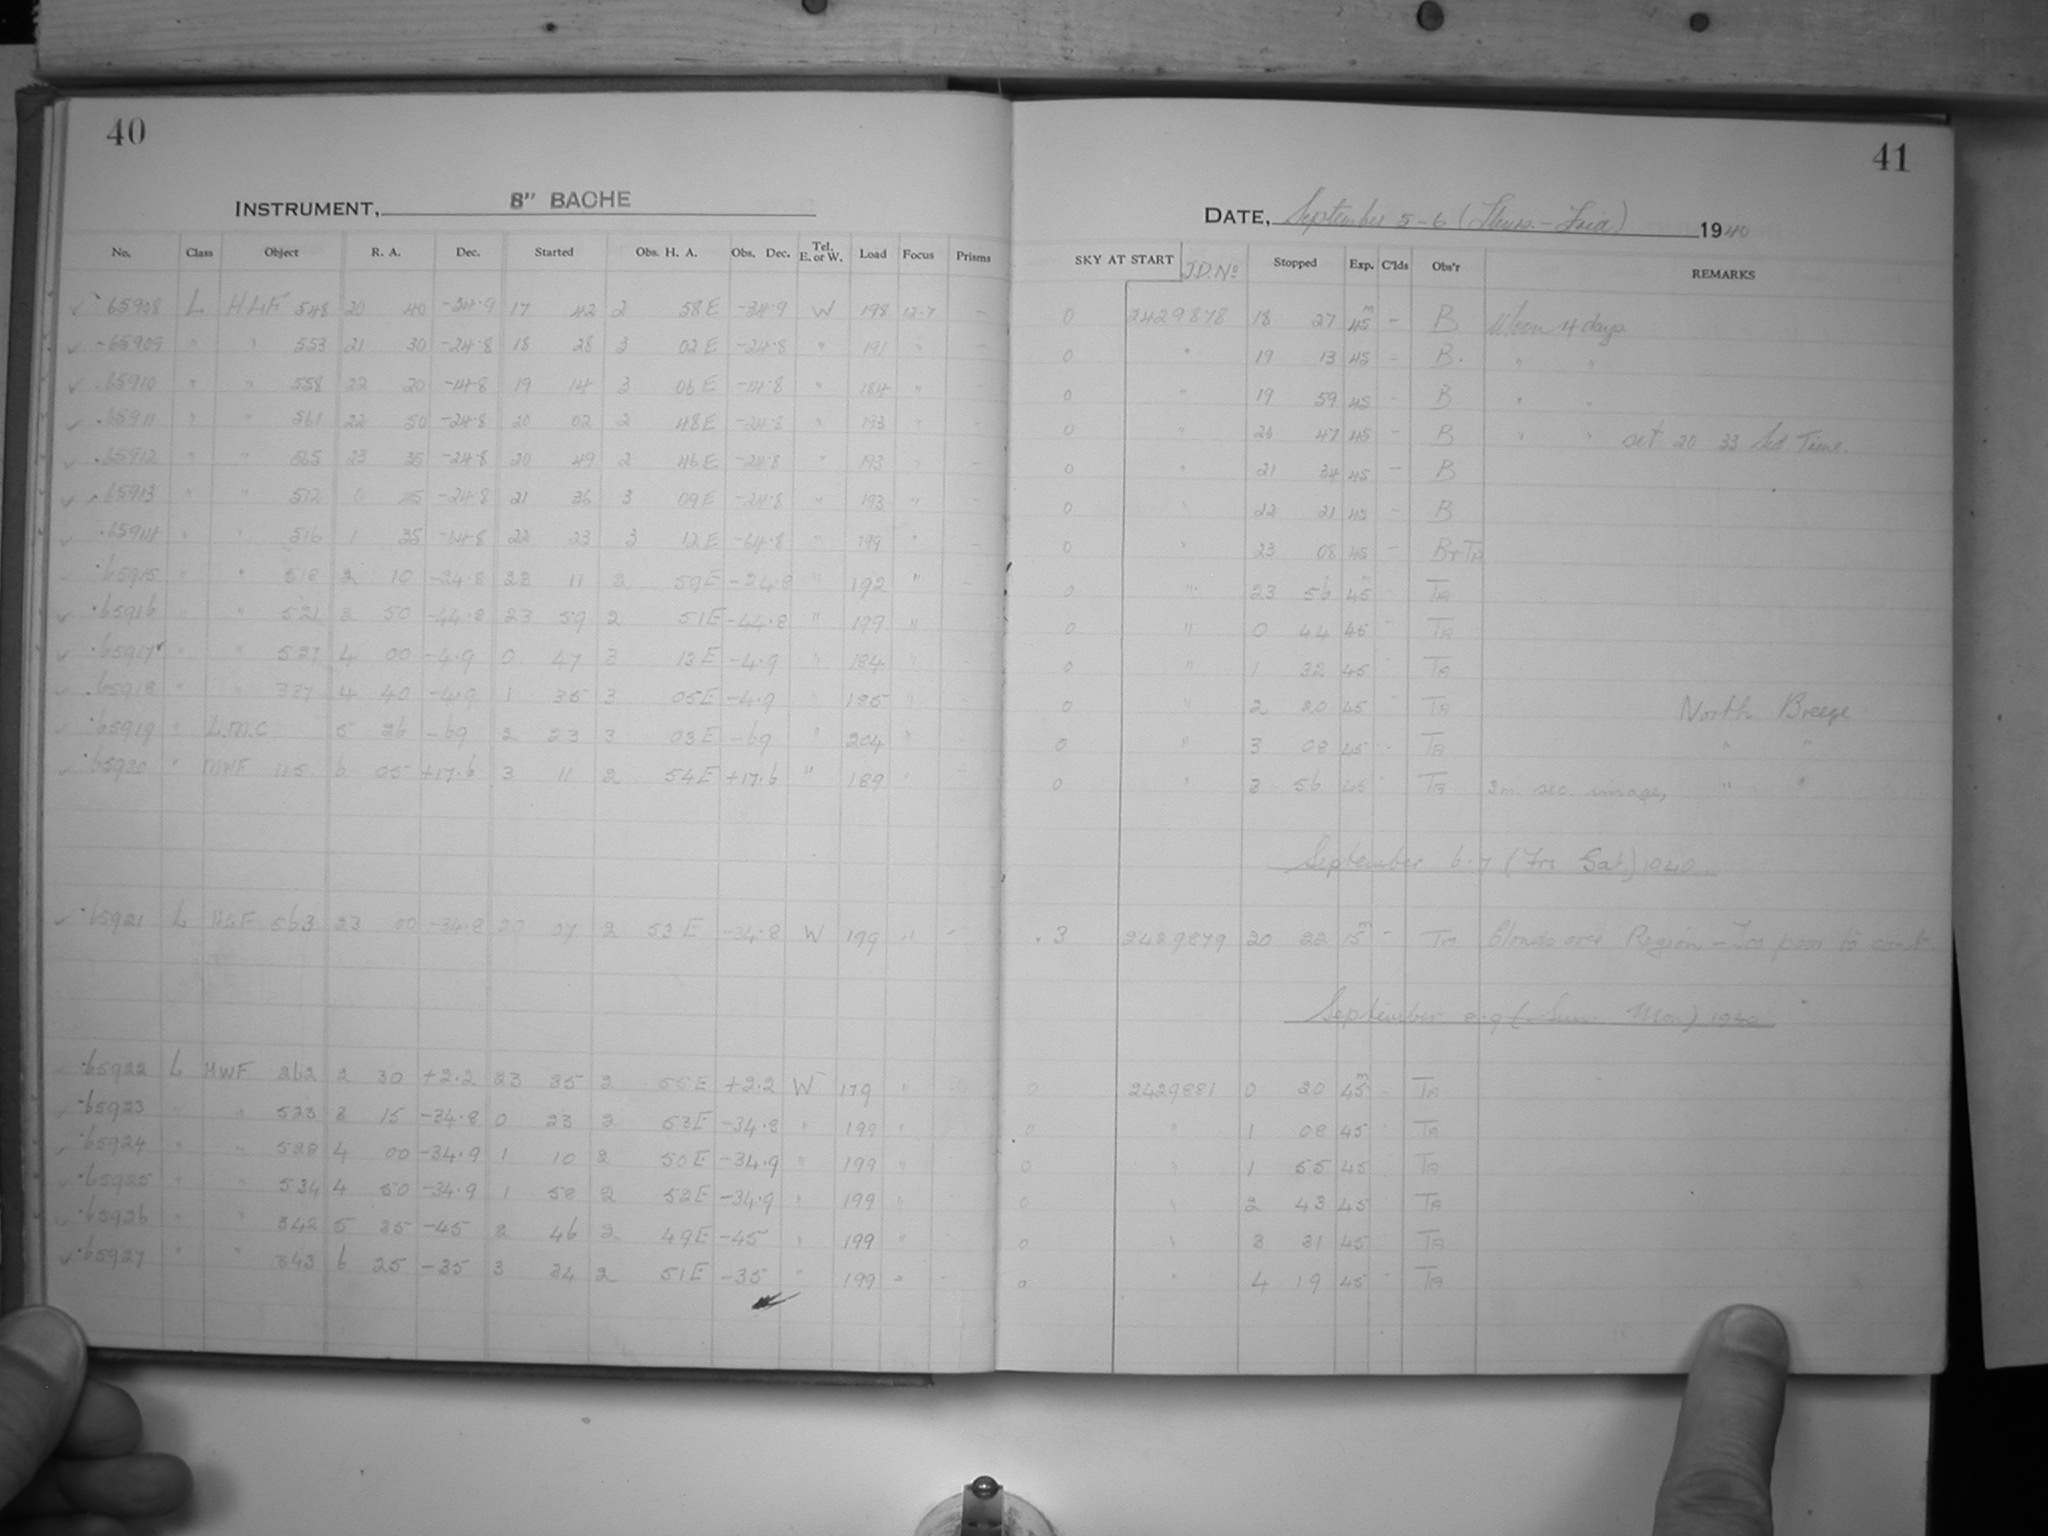 40
41
INSTRUMENT, 8" BACHE
DATE, September 5-6 (Thurs.- Frid) 1940
No. Class Object R. A. Dec. Started Obs. H. A. Obs. Dec. Tel. E. or W. Load Focus Prisms SKY AT START J.D. No Stopped Exp. C'lds Obs'r REMARKS
65908 L HLF 548 20 40 -34.9 17 42 2 58E -34.9 W 198 12.7 - 0 2429878 18 27 45m - B Moon 4 days
65909 " " 553 21 30 -24.8 18 28 3 02E -24.8 " 191 " - 0 " 19 13 45 - B. " "
65910 " " 558 22 20 -14.8 19 14 3 06E -14.8 " 184 " - 0 " 19 59 45 - B " "
65911 " " 561 22 50 -24.8 20 02 2 48E -24.8 " 193 " - 0 " 20 47 45 - B " " set 20 33 Sid Time.
65912 " " 565 23 35 -24.8 20 49 2 46E -24.8 " 193 " - 0 " 21 34 45 - B
65913 " " 512 0 25 -24.8 21 36 3 09E -24.8 " 193 " - 0 " 22 21 45 - B
65914 " " 516 1 35 -64.8 22 23 3 12E -64.8 " 199 " - 0 " 23 08 45 - B+TA
65915 " " 518 2 10 -24.8 23 11 2 59E -24.8 " 192 " - 0 " 23 56 45 - TA
65916 " " 521 2 50 -44.8 23 59 2 51E -44.8 " 199 " - 0 " 0 44 45 - TA
65917 " " 527 4 00 -4.9 0 47 3 13E -4.9 " 184 " - 0 " 1 32 45 TA
65918 " " 337 4 40 -4.9 1 35 3 05E -4.9 " 185 " - 0 " 2 20 45 - TA North Breeze
65919 " L.M.C. 5 26 -69 2 23 3 03E -69 " 204 " - 0 " 3 08 45 - TA " "
65920 " MWF 115 6 05 +17.6 3 11 2 54E +17.6 " 189 " - 0 " 3 56 45 - TA 2m sec. image, " "
September 6-7 (Fri Sat) 1940.
65921 L HLF 563 23 00 -34.8 20 07 2 53E -34.8 W 199 " - 3 2429879 20 22 15m - TA Clouds over Region - Too poor to cont.
September 8-9 (Sun Mon) 1940
65922 L MWF 262 2 30 +2.2 23 35 2 55E +2.2 W 179 " 0 2429881 0 20 45m - TA
65923 " " 523 3 15 -34.8 0 23 2 53E -34.8 " 199 " 0 " 1 08 45 TA
65924 " " 528 4 00 -34.9 1 10 2 50E -34.9 " 199 " 0 " 1 55 45 TA
65925 " " 534 4 50 -34.9 1 58 2 52E -34.9 " 199 " 0 " 2 43 45 TA
65926 " " 342 5 35 -45 2 46 2 49E -45 " 199 " 0 " 3 31 45 TA
65927 " " 343 6 25 -35 3 34 2 51E -35 " 199 " 0 " 4 19 45 TA